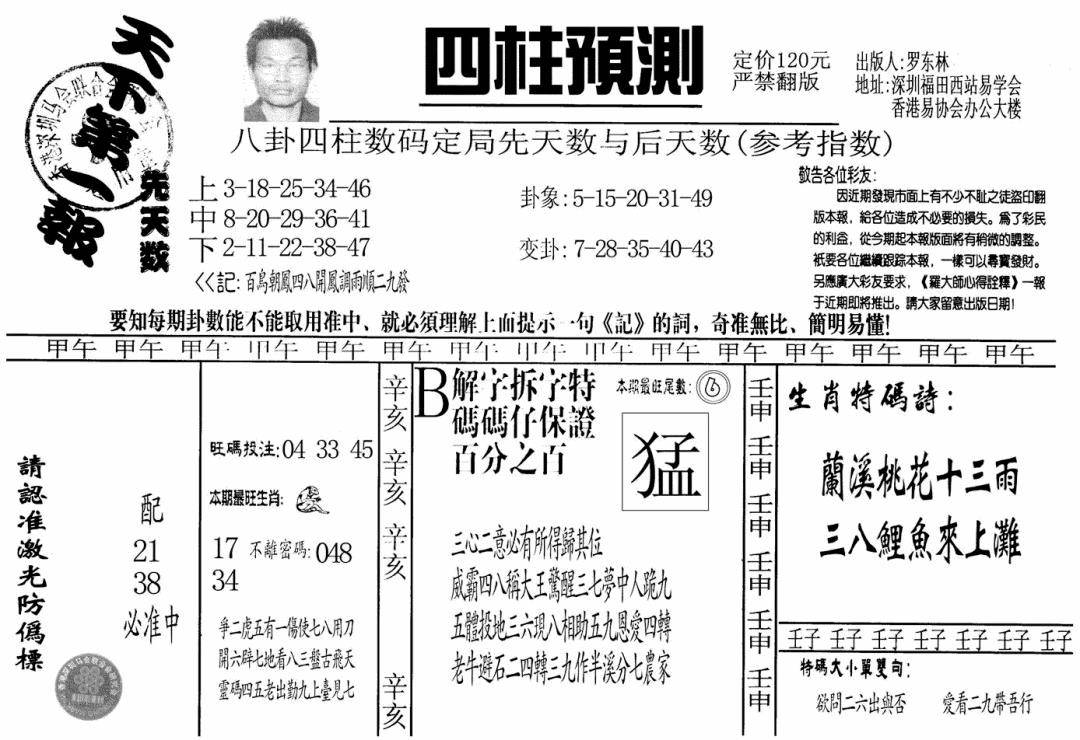 天下第一報
四柱預測
定价120元
严禁翻版
出版人:罗东林
地址:深圳福田西站易学会
香港易协会办公大楼
八卦四柱数码定局先天数与后天数(参考指数)
先天数
上3-18-25-34-46
中8-20-29-36-41
下2-11-22-38-47
卦象:5-15-20-31-49
变卦:7-28-35-40-43
<<記:百鳥朝鳳四八開鳳調雨順二九發
敬告各位彩友:
因近期發現市面上有不少不耻之徒盜印翻
版本報,給各位造成不必要的損失。爲了彩民
的利益,從今期起本報版面將有稍微的調整。
衹要各位繼續跟踪本報,一樣可以尋寶發財。
另應廣大彩友要求,《羅大師心得詮釋》一報
于近期即將推出。請大家留意出版日期!
要知每期卦數能不能取用准中、就必須理解上面提示一句《記》的詞,奇准無比、簡明易懂!
甲午 甲午 甲午 甲午 甲午 甲午 甲午 甲午 甲午 甲午 甲午 甲午 甲午 甲午 甲午
請認准激光防僞標
配
21
38
必准中
旺碼投注:04 33 45
本期最旺生肖:
17 不離密碼:048
34
爭二虎五有一傷使七八用刀
開六辟七地看八三盤古飛天
靈碼四五老出勤九上臺見七
辛亥 辛亥 辛亥 辛亥
B解字拆字特
碼碼仔保證
百分之百
本期最旺尾數:6
猛
三心二意必有所得歸其位
威霸四八稱大王驚醒三七夢中人跪九
五體投地三六現八相助五九恩愛四轉
老牛避石二四轉三九作半溪分七農家
壬申 壬申 壬申 壬申 壬申 壬申
生肖特碼詩:
蘭溪桃花十三雨
三八鯉魚來上灘
壬子 壬子 壬子 壬子 壬子 壬子 壬子
特碼大小單雙句:
欲問二六出與否 愛看二九帶吾行